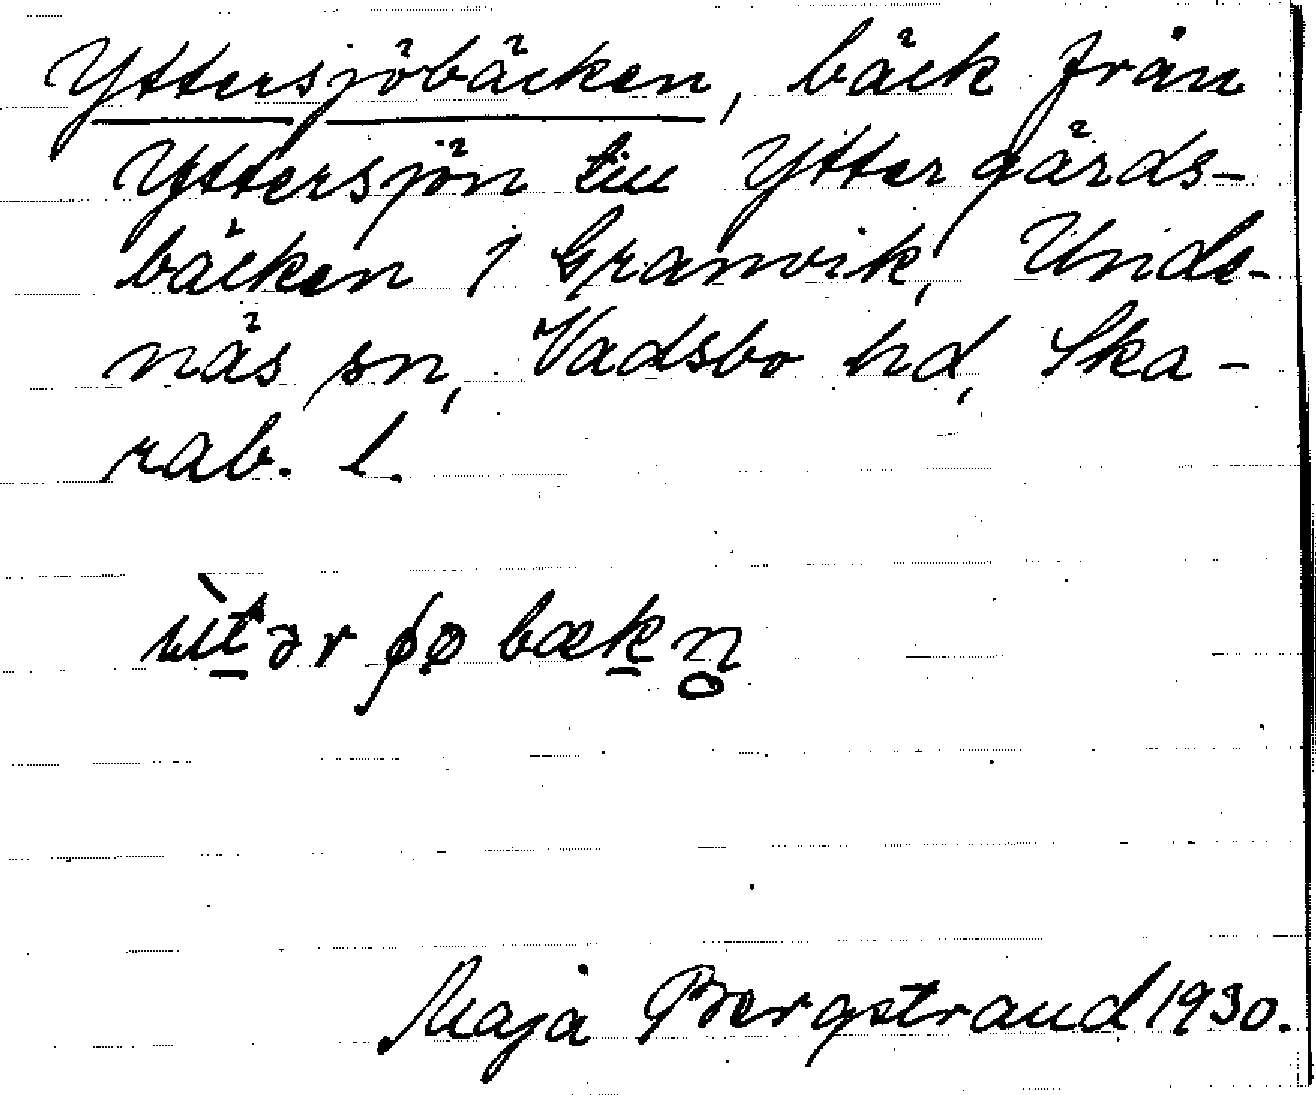 Yttersjöbäcken, bäck från
Yttersjön till Yttergärds-
bäcken i Granvik, Unde-
näs sn, Vadsbo hd, Ska-
rab. l.
Maja Bergstrand 1930.